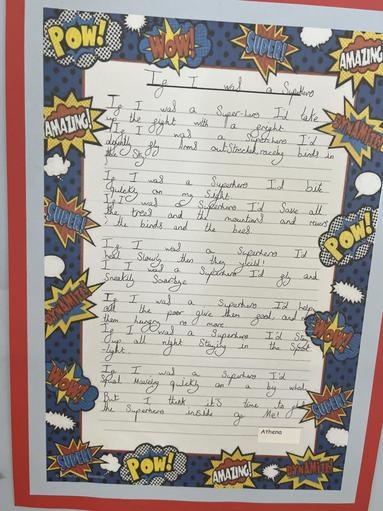 POW!
WOW!
SUPER!
AMAZING!
If I was a Superhero
If I was a Super-hero I'd take
up the fight with a
If I was a Superhero I'd
fly arms outStreched, birds in
the Sky
AMAZING!
DYNAMITE!
If I was a Superhero I'd
Quickly on my Sight
If I was a Superhero I'd Save all
the trees and the mountains and rivers
& the birds and the bees
SUPER!
POW!
If I was a Superhero I'd
Slowly then they
If I was a Superhero I'd fly and
DYNAMITE!
If I was a Superhero I'd help
all the poor give them food and
them hunger no more
If I was a Superhero I'd Stay
up all night Staying in the Spot
-light
WOW!
WOW!
If I was a Superhero I'd
quickly on a
But I think it's time to
the Superhero inside of Me!
SUPER!
Athena
SUPER!
POW!
AMAZING!
DYNAMITE!